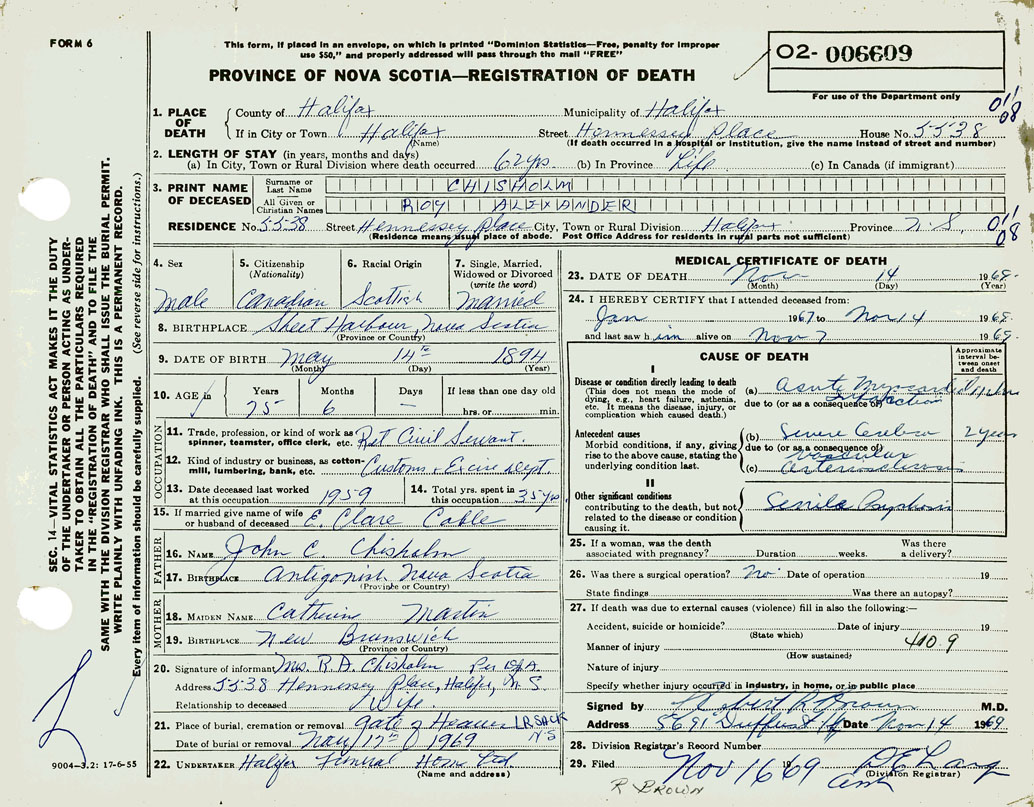 FORM 6
This form, if placed in an envelope, on which is printed "Dominion Statistics—Free, penalty for improper
use $50," and properly addressed will pass through the mail "FREE"
PROVINCE OF NOVA SCOTIA—REGISTRATION OF DEATH
02- 006609
For use of the Department only
SEC. 14—VITAL STATISTICS ACT MAKES IT THE DUTY
OF THE UNDERTAKER OR PERSON ACTING AS UNDER-
TAKER TO OBTAIN ALL THE PARTICULARS REQUIRED
IN THE "REGISTRATION OF DEATH" AND TO FILE THE
SAME WITH THE DIVISION REGISTRAR WHO SHALL ISSUE THE BURIAL PERMIT.
WRITE PLAINLY WITH UNFADING INK. THIS IS A PERMANENT RECORD.
Every item of information should be carefully supplied. (See reverse side for instructions.)
1. PLACE OF DEATH
County of Halifax Municipality of Halifax
If in City or Town Halifax Street Hennessey Place House No. 5538
(Name) (If death occurred in a hospital or institution, give the name instead of street and number)
01
08
2. LENGTH OF STAY (in years, months and days)
(a) In City, Town or Rural Division where death occurred 62 yrs (b) In Province Life (c) In Canada (if immigrant)
3. PRINT NAME OF DECEASED
Surname or Last Name CHISHOLM
All Given or Christian Names ROY ALEXANDER
RESIDENCE No. 5538 Street Hennessey Place City, Town or Rural Division Halifax Province N.S.
(Residence means usual place of abode. Post Office Address for residents in rural parts not sufficient)
01
08
4. Sex
Male
5. Citizenship (Nationality)
Canadian
6. Racial Origin
Scottish
7. Single, Married, Widowed or Divorced (write the word)
Married
8. BIRTHPLACE Sheet Harbour, Nova Scotia
(Province or Country)
9. DATE OF BIRTH May 14th 1894
(Month) (Day) (Year)
10. AGE in
Years 75
Months 6
Days —
If less than one day old
hrs. or min.
OCCUPATION
11. Trade, profession, or kind of work as
spinner, teamster, office clerk, etc. Ret Civil Servant.
12. Kind of industry or business, as cotton-
mill, lumbering, bank, etc. Customs & Excise Dept.
13. Date deceased last worked
at this occupation 1959
14. Total yrs. spent in
this occupation 35 yrs
15. If married give name of wife
or husband of deceased E. Clare Coble
FATHER
16. NAME John C. Chisholm
17. BIRTHPLACE Antigonish Nova Scotia
(Province or Country)
MOTHER
18. MAIDEN NAME Catherine Martin
19. BIRTHPLACE New Brunswick
(Province or Country)
20. Signature of informant Mrs. R. A. Chisholm Per
Address 5538 Hennessey Place, Halifax, N.S
Relationship to deceased Wife.
21. Place of burial, cremation or removal Gate of Heaven LR SACK
N-S
Date of burial or removal Nov 17th 1969
22. UNDERTAKER Halifax Funeral Home Ltd
(Name and address)
9004—3.2: 17-6-55
MEDICAL CERTIFICATE OF DEATH
23. DATE OF DEATH Nov 14 1969
(Month) (Day) (Year)
24. I HEREBY CERTIFY that I attended deceased from:
Jan 1967 to Nov 14 1969
and last saw him alive on Nov 7 1969
CAUSE OF DEATH
Approximate interval between onset and death
I
Disease or condition directly leading to death
(This does not mean the mode of
dying, e.g., heart failure, asthenia,
etc. It means the disease, injury, or
complication which caused death.)
(a) Acute Myocardial
Infarction
due to (or as a consequence of)
Antecedent causes
Morbid conditions, if any, giving
rise to the above cause, stating the
underlying condition last.
(b) Severe Cerebro 2 years
due to (or as a consequence of)
vascular
(c) Arteriosclerosis
II
Other significant conditions
contributing to the death, but not
related to the disease or condition
causing it.
Senile Psychosis
25. If a woman, was the death
associated with pregnancy? Duration weeks. Was there
a delivery?
26. Was there a surgical operation? No Date of operation 19
State findings Was there an autopsy?
27. If death was due to external causes (violence) fill in also the following:—
Accident, suicide or homicide? Date of injury 19
(State which)
Manner of injury 410.9
(How sustained)
Nature of injury
Specify whether injury occurred in industry, in home, or in public place
Signed by Robert R Brown M.D.
Address 5691 Duffus St Hfx Date Nov 14 1969
28. Division Registrar's Record Number
29. Filed Nov 16 1969
(Division Registrar)
R BROWN